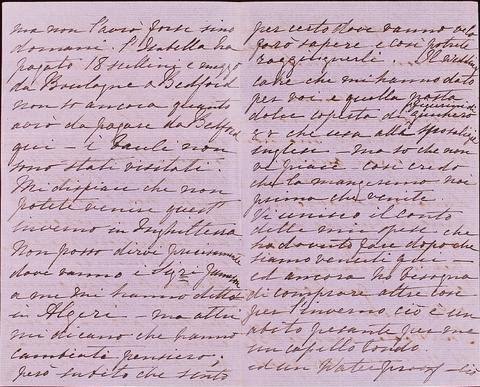 ma non l'avrò forse sino
domani. L'Isabella ha
pagato 18 scellini e mezzo
da Boulogne a Bedford
non so ancora quanto
avrò da pagare da Bedford
qui – i bauli non
sono stati visitati.
Mi dispiace che non
potete venire quest'
inverno in Inghilterra
Non posso dirvi precisamente
dove vanno i Sigri
a me mi hanno detto
in Algeri – ma altri
mi dicono che hanno
cambiato pensiero;
però subito che sento
per certo dove vanno ve lo
farò sapere e così potrete
raggiungerli. Il
che mi hanno dato
per voi e quella pasta
dolce coperta di
zucchero
che usa alle sposalizie
inglese – ma so che non
ve piace – così credo
che la mangeremo noi
prima che venite.
Vi unisco il conto
delle mie spese, che
ho dovuto fare dopo che
siamo venuti qui –
ed ancora ho bisogna
di comprare altre cose
per l'inverno cio è un
abito pesante per me
un capello tondo.
ed un Waterproof –